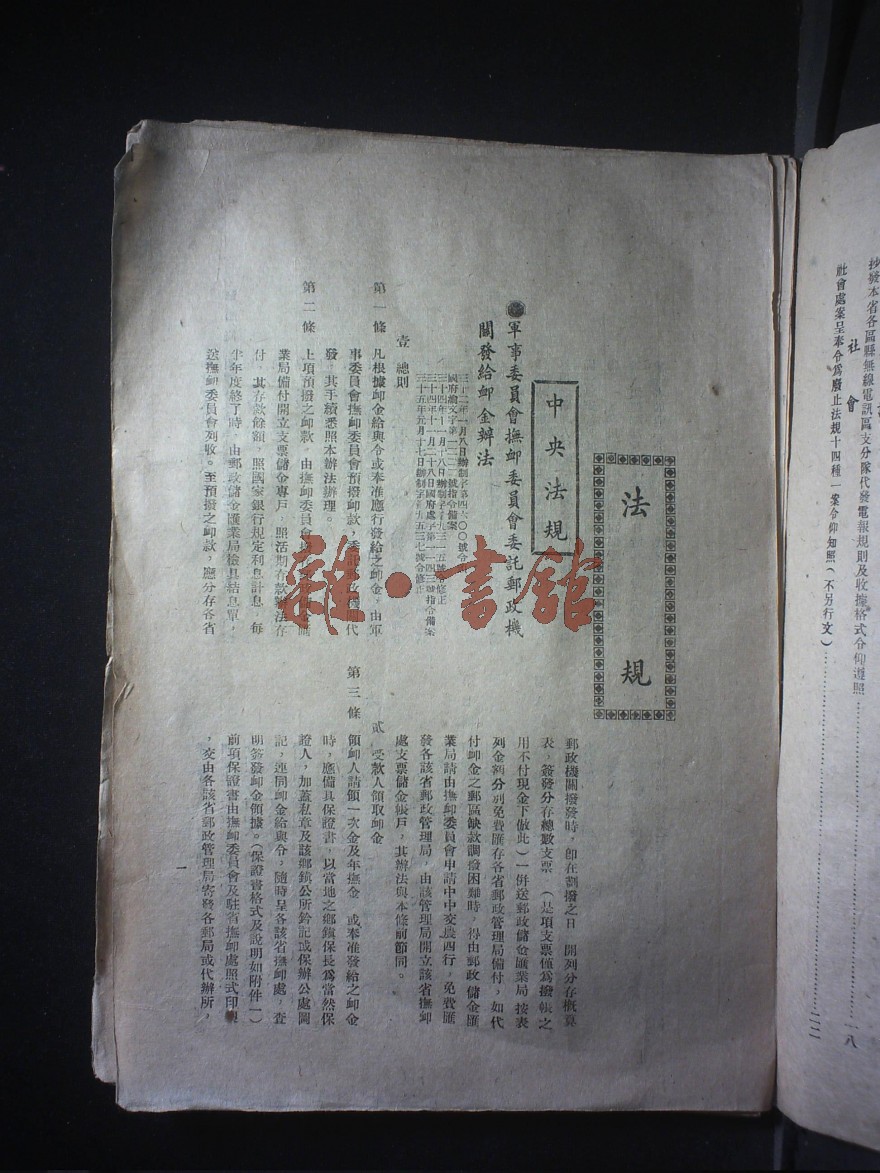 抄發本省各區縣無線電訊區支分隊代發電報規則及收據格式令仰遵照……一八
社會
社會處案呈奉令為廢止法規十四種一案令仰知照(不另行文)……二二
法規
中央法規
軍事委員會撫卹委員會委託郵政機
關發給卹金辦法
三十二年一月八日辦制字第四六〇〇號令
壹 總則
第一條 凡根據卹金給與令或奉准應行發給之卹金,由軍
事委員會撫卹委員會預撥卹款,委託郵政機關代
發,其手續悉照本辦法辦理。
第二條 上項預撥之卹款,由撫卹委員會
業局備付開立支票儲金專戶,照活期存款辦法存
付,其存款餘額,照國家銀行規定利息計息,每
半年度終了時,由郵政儲金匯業局檢具結息單,
送撫卹委員會列收。至預撥之卹款,應分存各省
郵政機關撥發時,卽在劃撥之日 開列分存概算
表,簽發分存總數支票(是項支票僅為撥帳之
用不付現金下倣此)一併送郵政儲金匯業局按表
列金額分別免費匯存各省郵政管理局備付,如代
付卹金之郵區缺款調撥困難時,得由郵政儲金匯
業局請由撫卹委員會申請中中交農四行,免費匯
發各該省郵政管理局,由該管理局開立該省撫卹
處支票儲金帳戶,其辦法與本條前節同。
貳 受款人領取卹金
第三條 領卹人請領一次金及年撫金 或奉准發給之卹金
時,應備具保證書,以當地之鄉鎮保長為當然保
證人,加蓋私章及該鄉鎮公所鈐記或保辦公處圖
記,連同卹金給與令,隨時呈各該省撫卹處,查
明簽發卹金領據。(保證書格式及說明如附件一)
前項保證書由撫卹委員會及駐省撫卹處照式印製
,交由各該省郵政管理局寄發各郵局或代辦所,
一
雜·書館